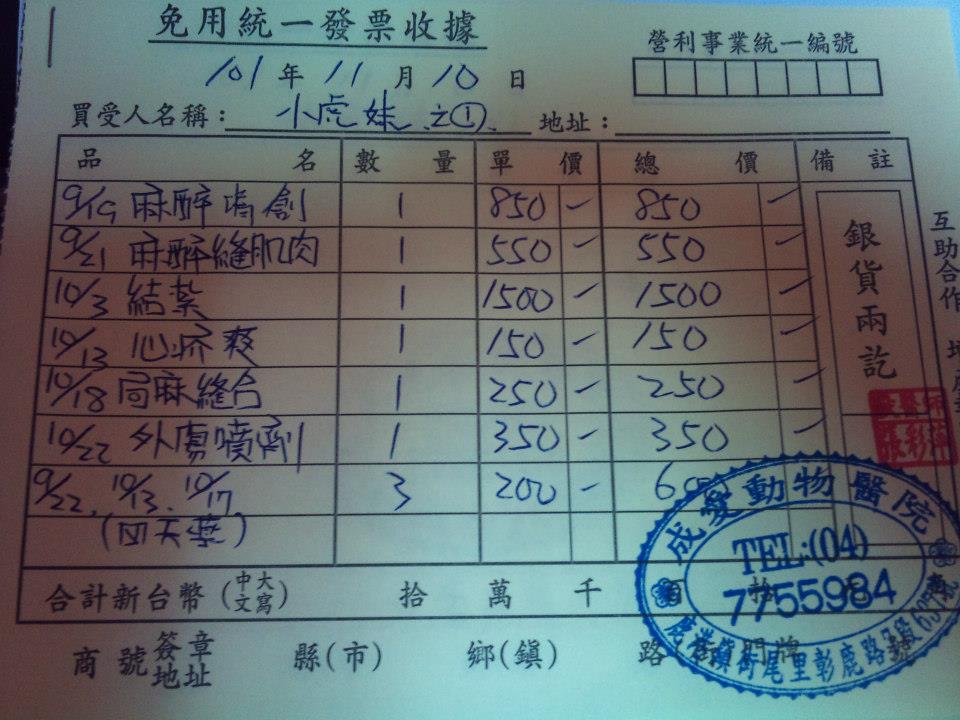 免用統一發票收據
營利事業統一編號
101年11月10日
買受人名稱：小虎妹之① 地址：
品名 數量 單價 總價 備註
9/19 麻醉清創 1 850 - 850 -
9/21 麻醉縫肌肉 1 550 - 550 -
10/3 結紮 1 1500 - 1500 -
10/13 心疥爽 1 150 - 150 -
10/18 局麻縫合 1 250 - 250 -
10/22 外傷噴劑 1 350 - 350 -
9/22、10/13、10/17 3 200 - 600
(四天藥)
銀貨兩訖
互助合作
合計新台幣(中文大寫) 拾 萬 千 百 拾
商號簽章地址 縣(市) 鄉(鎮) 路 街 門牌 號
成愛動物醫院
TEL:(04)
7755984
鹿港鎮街尾里彰鹿路